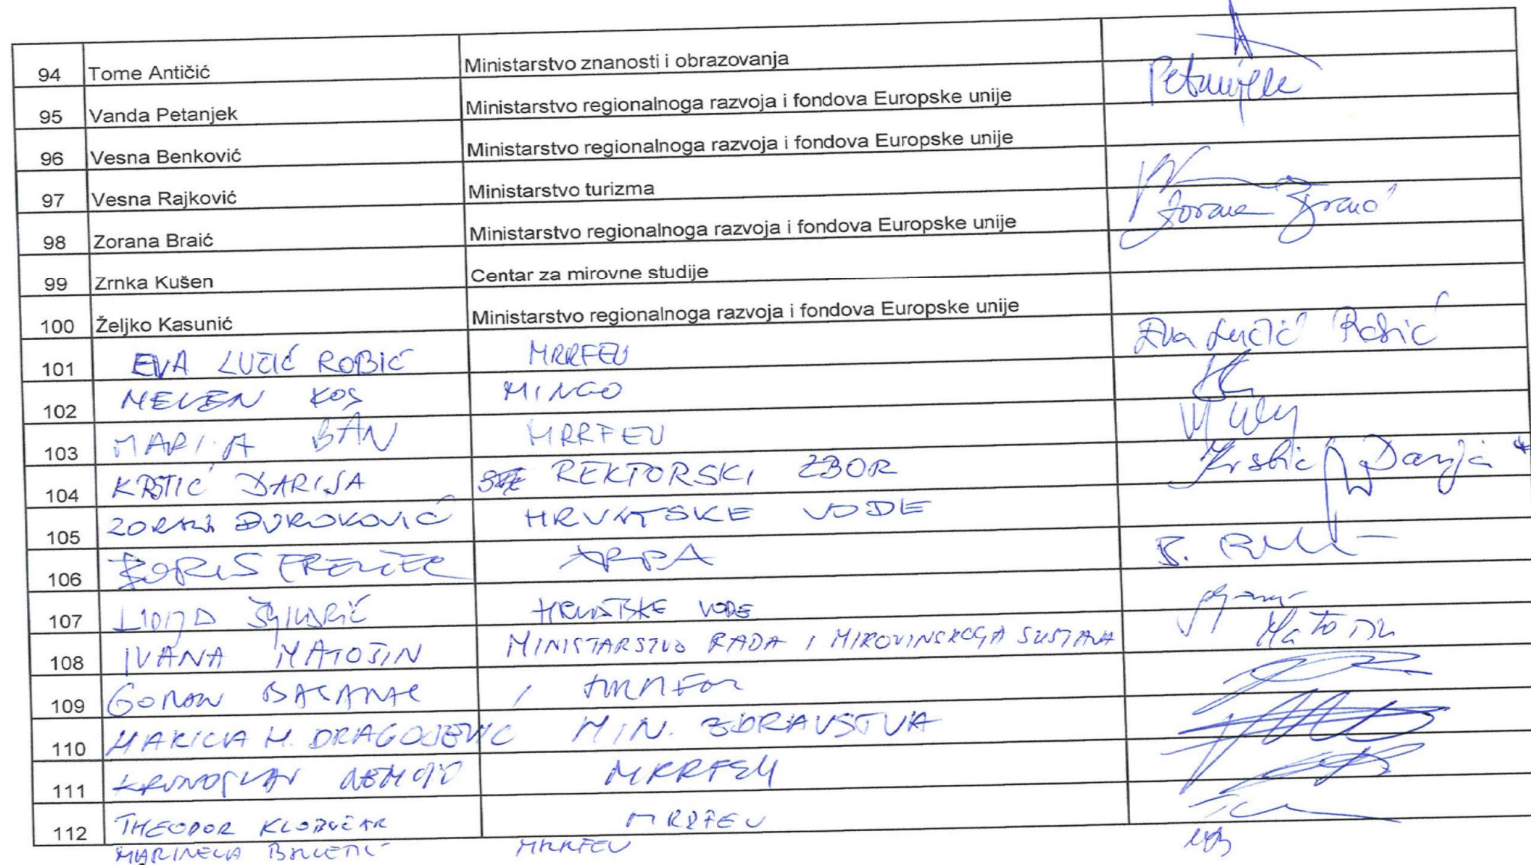 94 Tome Antičić Ministarstvo znanosti i obrazovanja
95 Vanda Petanjek Ministarstvo regionalnoga razvoja i fondova Europske unije Petanjek
96 Vesna Benković Ministarstvo regionalnoga razvoja i fondova Europske unije
97 Vesna Rajković Ministarstvo turizma
98 Zorana Braić Ministarstvo regionalnoga razvoja i fondova Europske unije Zorana Braić
99 Zrnka Kušen Centar za mirovne studije
100 Željko Kasunić Ministarstvo regionalnoga razvoja i fondova Europske unije
101 EVA LUCIĆ ROBIĆ MRRFEU Eva Lucić Robić
102 NEVEN KOS MINGO
103 MARIJA BAN MRRFEU
104 KRSTIĆ DARIJA REKTORSKI ZBOR Krstić Darija
105 ZORAN ĐUROKOVIĆ HRVATSKE VODE
106 BORIS ARPA
107 HRVATSKE VODE
108 IVANA MATOŠIN MINISTARSTVO RADA I MIROVINSKOGA SUSTAVA Matošin
109 GORAN
110 MARICA M. DRAGOJEVIĆ MIN. ZDRAVSTVA
111 KRUNOSLAV MRRFEU
112 THEODOR KLOBUČAR MRRFEU
MARINELA MRRFEU